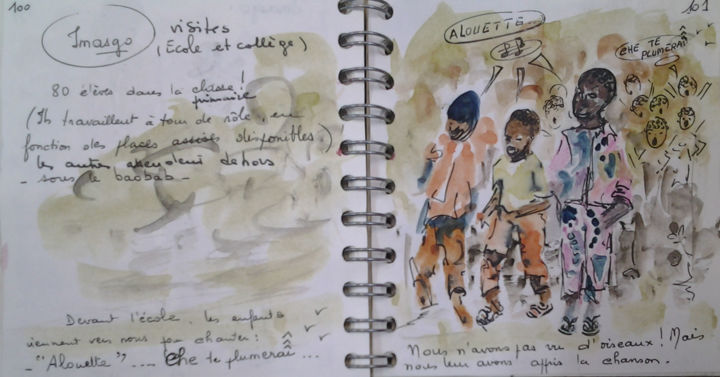 100
Imasgo visites
(École et collège)
80 élèves dans la classe !
primaire
(Ils travaillent à tour de rôle, en
fonction des places assises disponibles.)
les autres attendent dehors
- sous le baobab -
Devant l'école, les enfants
viennent vers nous pour chanter :
- "Alouette" .... Che te plumerai ...
101
ALOUETTE
CHE TE
PLUMERAI
Nous n'avons pas vu d'oiseaux ! Mais
nous leur avons appris la chanson.